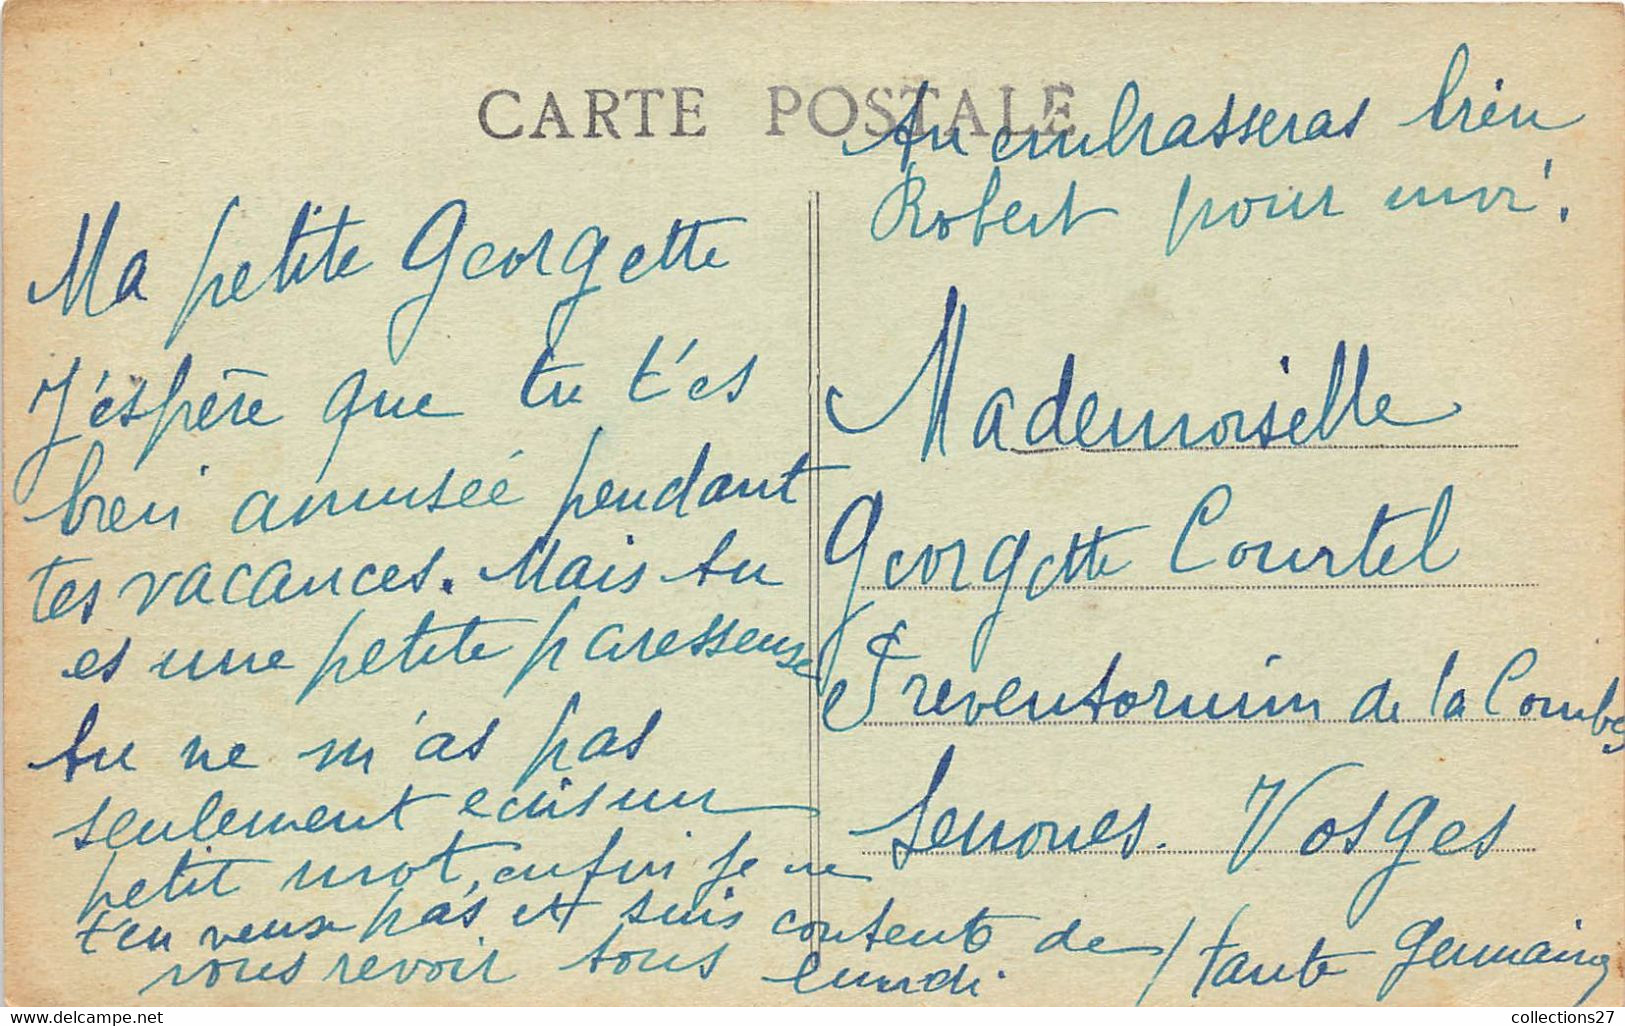 CARTE POSTALE
Ma petite Georgette
J'éspère que tu t'es
bien amusée pendant
tes vacances. Mais tu
es une petite paresseuse
tu ne m'as pas
seulement ecris un
petit mot, enfin je ne
t'en veux pas et suis contente de
vous revoir tous lundi
tante Germaine
tu embrasseras bien
Robert pour moi.
Mademoiselle
Georgette Courtel
Preventorium de la Combe
Senones. Vosges
collections27